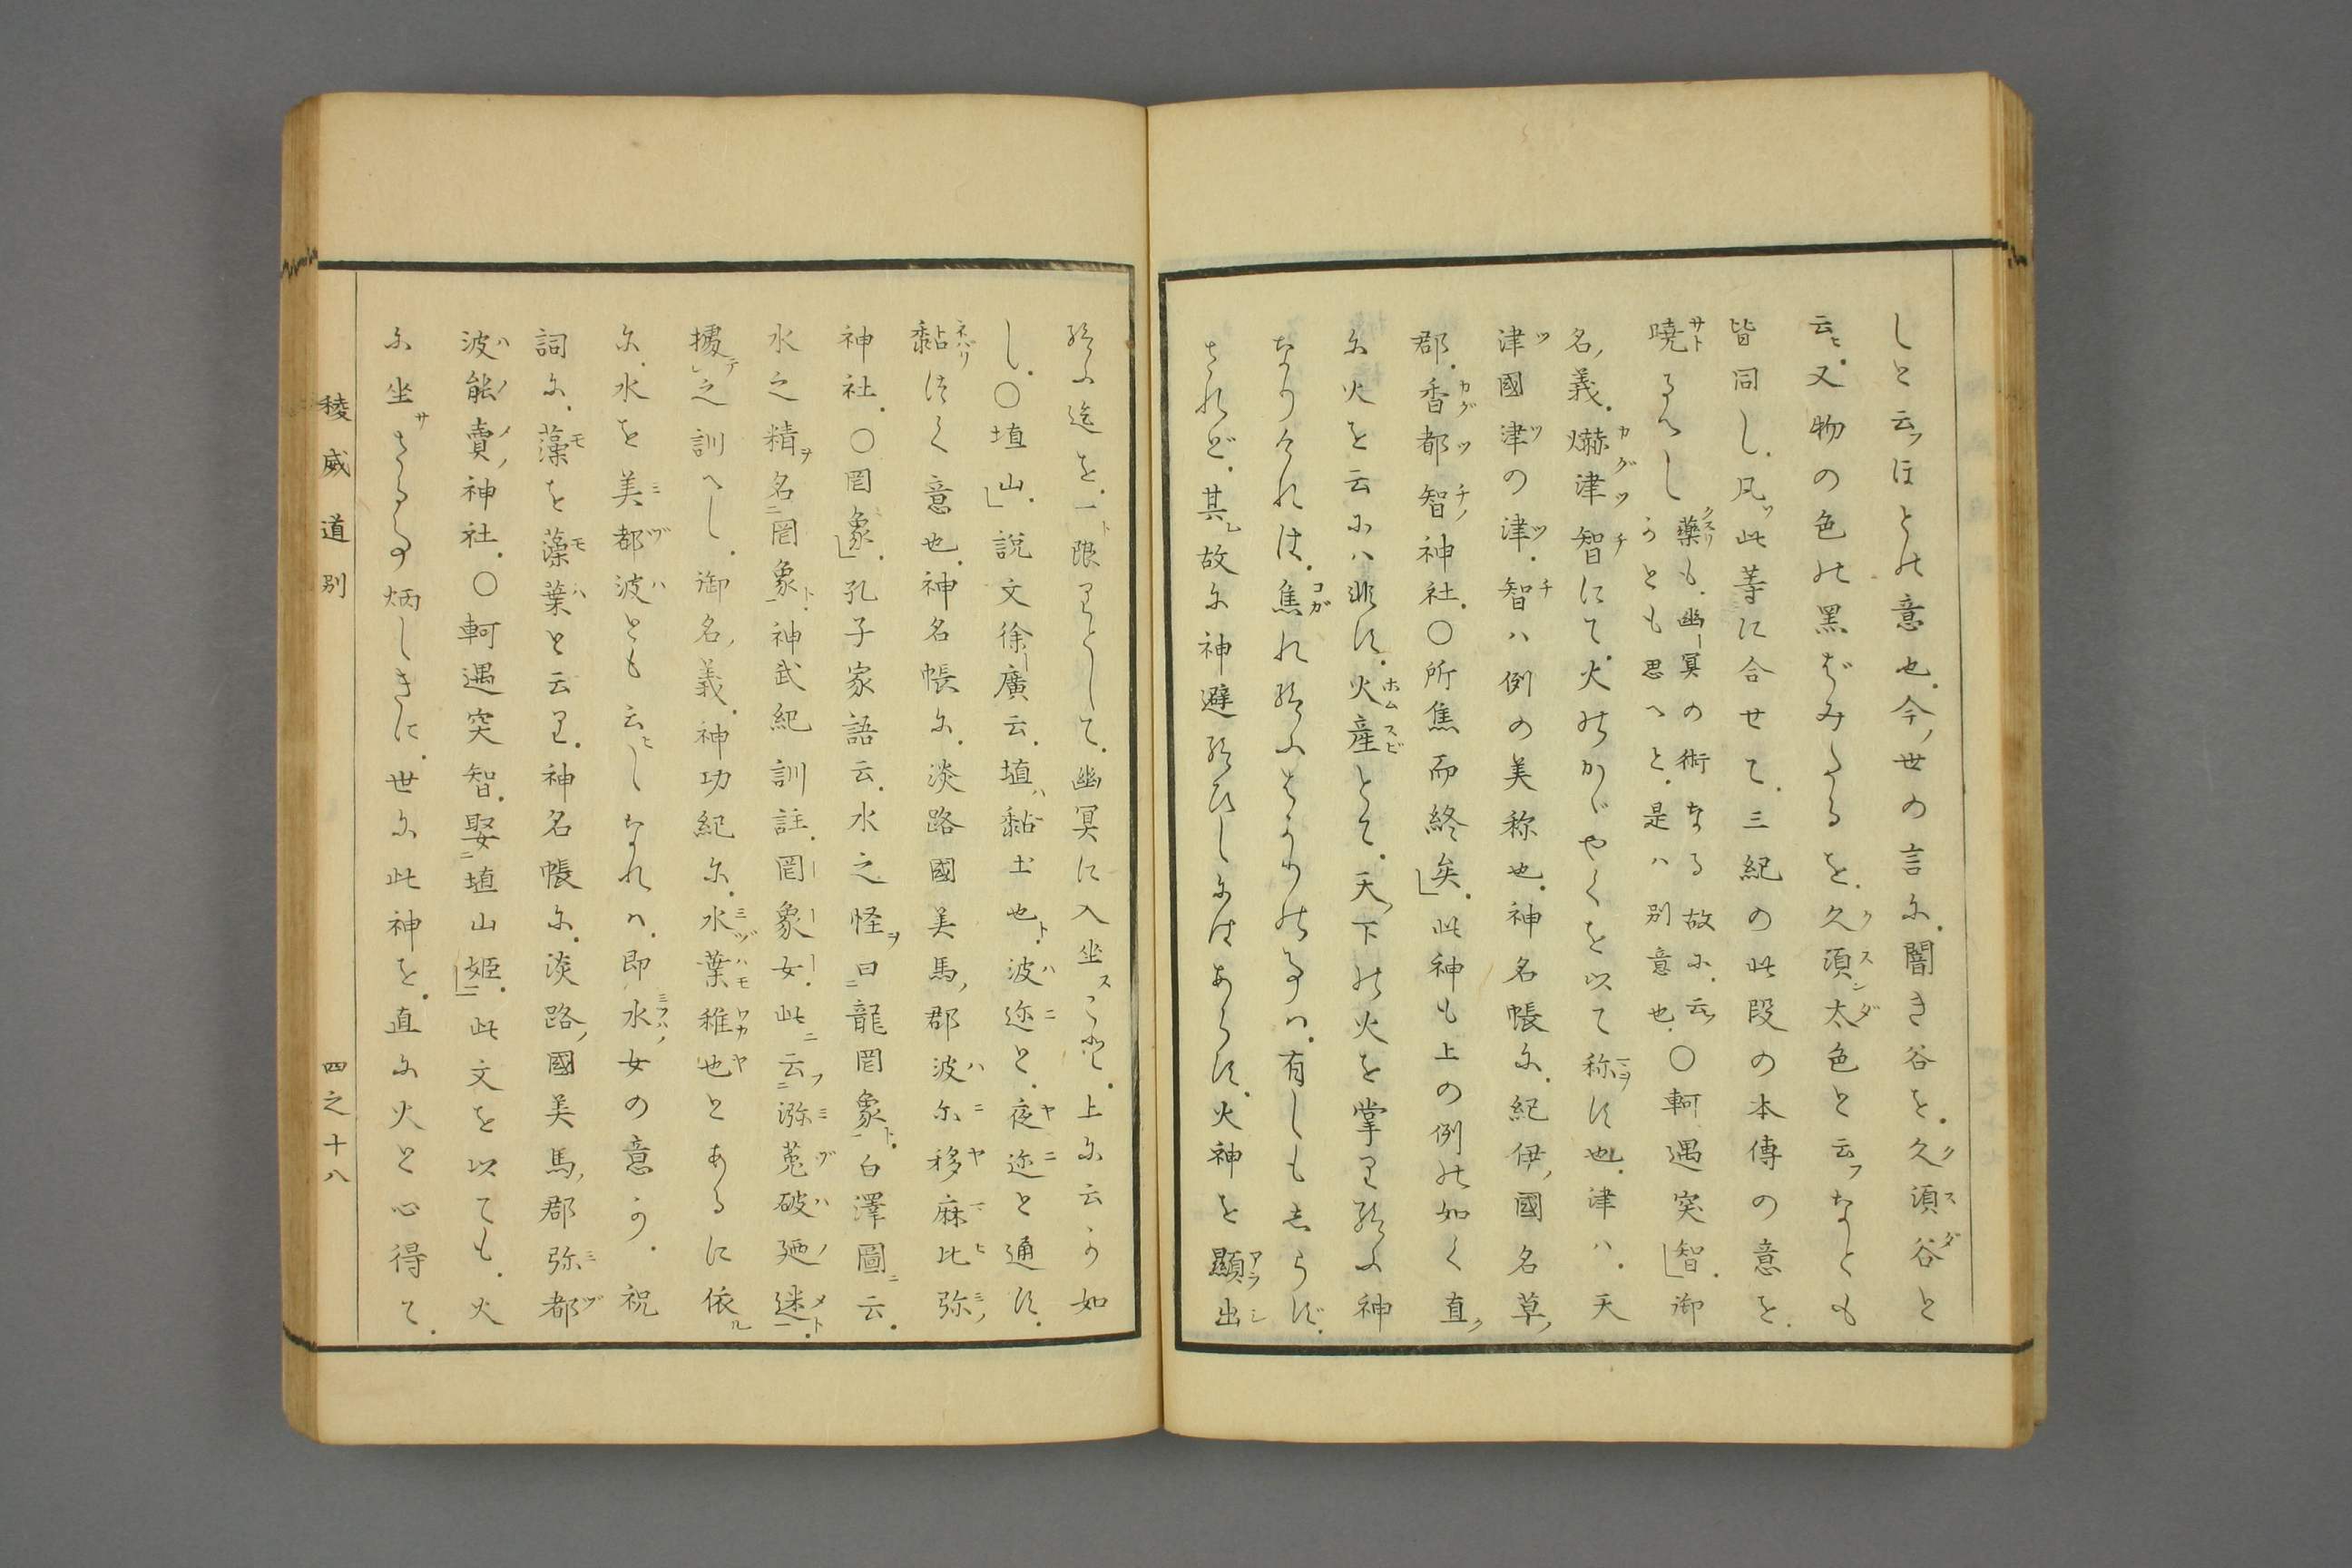 しと云フほとの意也。今ノ世の言尓。闇き谷を。久須谷と
云ヒ。又物の色の黒ばみたるを。久須太色と云フなとも
皆同し。凡ソ此等に合せて。三紀の此段の本傳の意を。
曉るへし 藥も。幽冥の術なる故尓。云フ
かとも思へと。是ハ別意也。〇軻遇突智。御
名ノ義。爀津智にて。火のかゞやくを以て称す也。津ハ。天
津國津の津。智ハ例の美称也。神名帳尓。紀伊ノ國名草ノ
郡。香都智ノ神社。〇所焦而終矣。此神も上の例の如く直ク
尓火を云ふハ非す。火産とて。天ノ下の火を掌り給ふ神
なりけれは。焦れ給ふはかりの事ハ。有しも志らず。
されど。其レ故尓神避給ひし尓はあらす。火神を顯出
給ふ迄を。一ト限りとして。幽冥に入坐ス。上尓云か如
し。〇埴山。說文徐廣云。埴ハ黏土也ト。波迩と。夜迩と通す。
黏はく意也。神名帳尓。淡路國美馬ノ郡波尓移麻比弥ノ
神社。〇罔象。孔子家語云。水之怪ヲ曰ニ龍罔象ト。白澤圖ニ云。
水之精ヲ名ニ罔象ト。神武紀訓註。罔象女。此ニ云フ瀰菟破廼迷ト。
擾テ之訓へし。御名ノ義。神功紀尓。水葉稚也とあるに依ル
尓。水を美都波とも云ヒしなれハ。即水ノ女の意か。祝
詞尓。藻を藻葉と云り。神名帳尓。淡路ノ國美馬ノ郡弥都
波能賣ノ神社。〇軻遇突智。娶ニ埴山姬。此文を以ても。火
尓坐さる事炳しきに。世尓此神を。直尓火と心得て。
稜威道別
四之十八